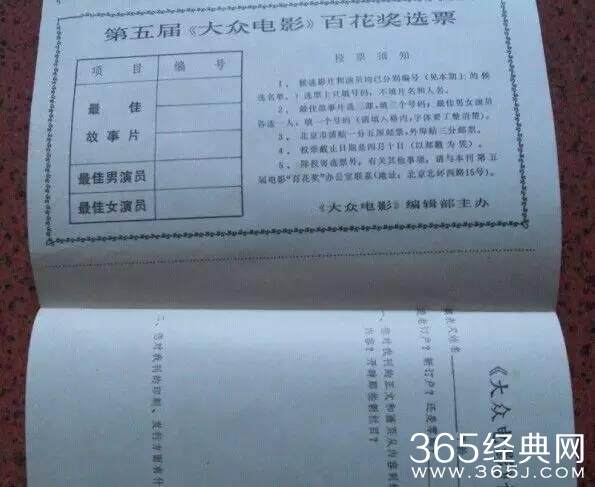 第五届《大众电影》百花奖选票
项 目
编 号
最 佳
故事片
最佳男演员
最佳女演员
投 票 须 知
1、候选影片和演员均已分别编号（见本期上的候
选名单。）选票上只填号码，不填片名和人名。
2、最佳故事片选三部，填三个号码；最佳男女演员
各选一人，填一个号码（请填入格内，字体要工整清楚）。
3、北京市请贴一分五厘邮票，外埠贴三分邮票。
4、投票截止日期是四月十日（以邮戳为凭）。
5、除投寄选票外，有关其他事项，请与本刊第五
届电影“百花奖”办公室联系（地址：北京北环西路15号）。
《大众电影》编辑部主办
《大众电
老订户？新订户？还是零
一、您对我刊的正文和画页从内容到
内容？开辟那些新栏目？
二、您对我刊的印制、发行方面有什
365经典网
WWW.365J.COM